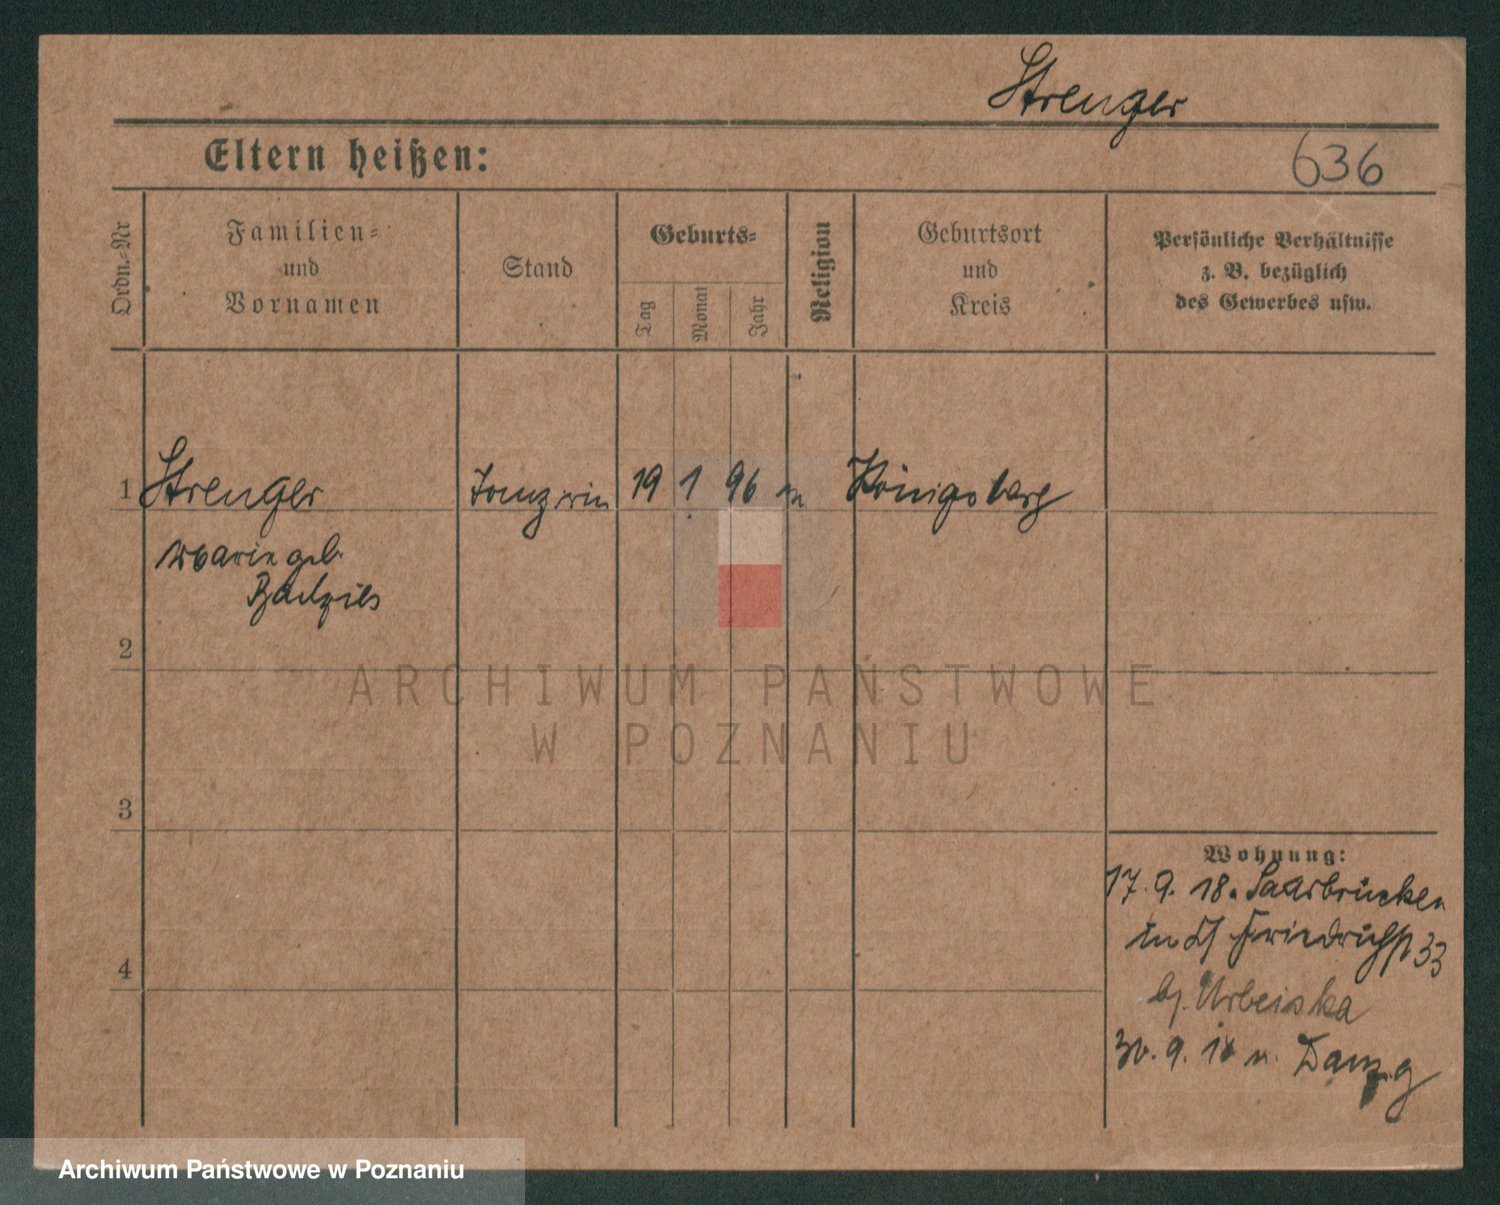 Strenger
Eltern heißen:
636
Ordn.-Nr
Familien-
und
Vornamen
Stand
Geburts-
Tag
Monat
Jahr
Religion
Geburtsort
und
Kreis
Persönliche Verhältnisse
z. B. bezüglich
des Gewerbes usw.
1 Strenger 19 1 96 Königsberg
Marie geb.
2
ARCHIWUM PAŃSTWOWE
W POZNANIU
3
Wohnung:
17. 9. 18. Saarbrücken
Friedrichst 33
b. Urbeiska
4
30. 9. 18 n. Danzig
Archiwum Państwowe w Poznaniu